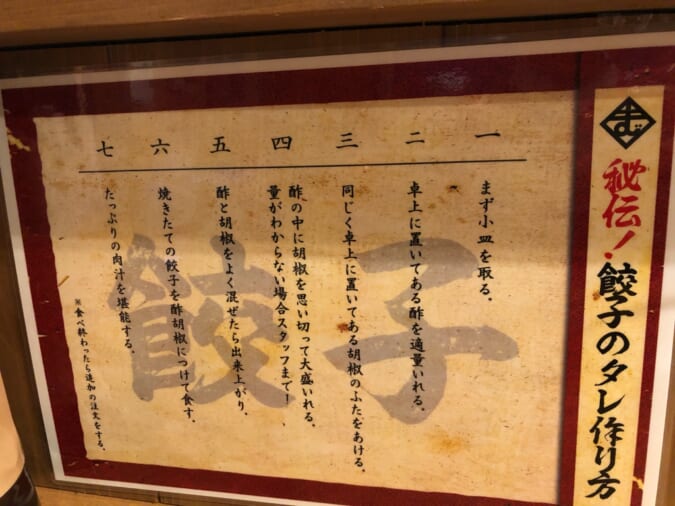 秘伝！餃子のタレ作り方
一
まず小皿を取る。
二
卓上に置いてある酢を適量いれる。
三
同じく卓上に置いてある胡椒のふたをあける。
四
酢の中に胡椒を思い切って大盛いれる。
量がわからない場合スタッフまで！
五
酢と胡椒をよく混ぜたら出来上がり。
六
焼きたての餃子を酢胡椒につけて食す。
七
たっぷりの肉汁を堪能する。
※食べ終わったら追加の注文をする。
餃子